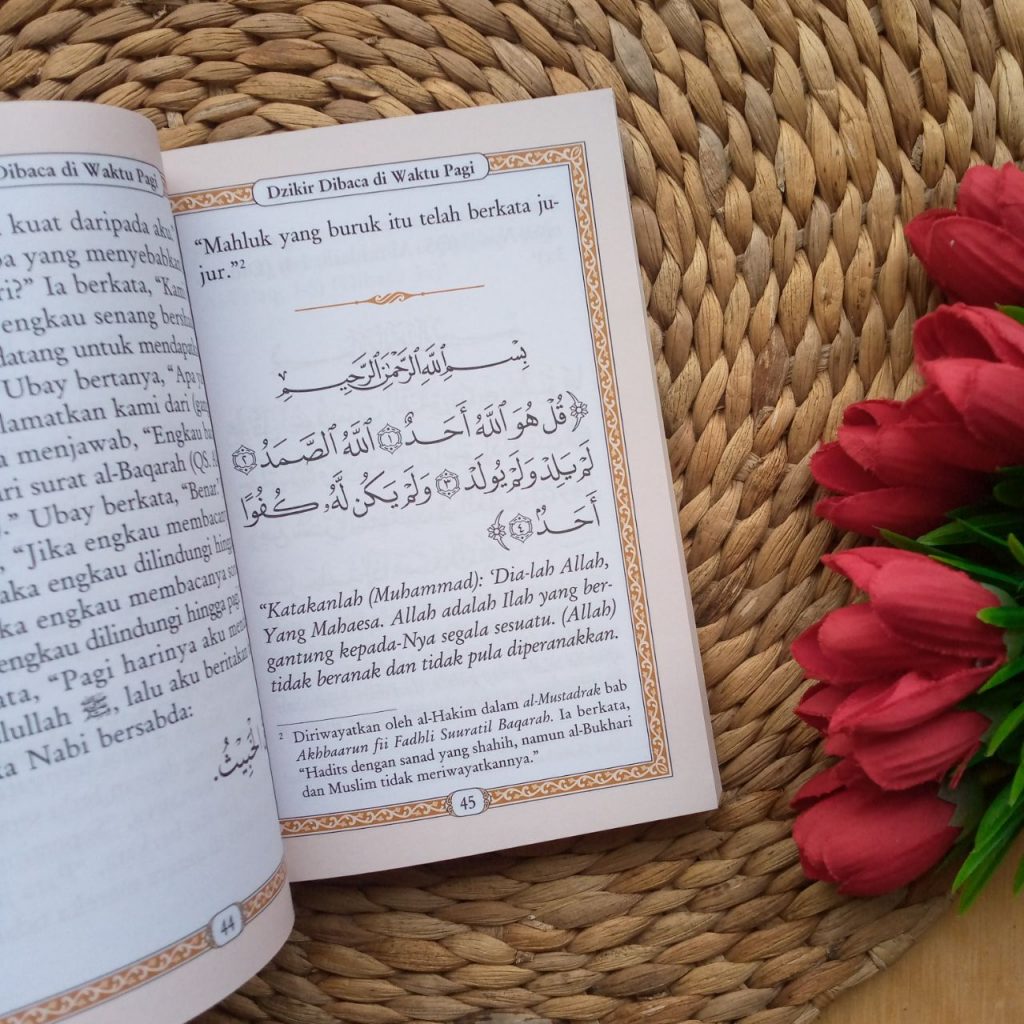 Dibaca di Waktu Pagi
kuat daripada aku?
yang menyebabkan
Ia berkata, “Kami
engkau senang
datang untuk
Ubay bertanya, “Apa
kami dari
menjawab, “Engkau
surat al-Baqarah (QS.
Ubay berkata, “Benar.”
“Jika engkau membaca
engkau dilindungi
engkau membacanya
engkau dilindungi hingga pagi
“Pagi harinya aku
ﷺ, lalu aku beritakan
Nabi bersabda:
44
Dzikir Dibaca di Waktu Pagi
“Mahluk yang buruk itu telah berkata ju-
jur.”²
بِسْمِ ٱللَّهِ ٱلرَّحْمَٰنِ ٱلرَّحِيمِ
﴿ قُلْ هُوَ ٱللَّهُ أَحَدٌ ١ ٱللَّهُ ٱلصَّمَدُ ٢
لَمْ يَلِدْ وَلَمْ يُولَدْ ٣ وَلَمْ يَكُن لَّهُۥ كُفُوًا
أَحَدٌۢ ٤ ﴾
“Katakanlah (Muhammad): ‘Dia-lah Allah,
Yang Mahaesa. Allah adalah Ilah yang ber-
gantung kepada-Nya segala sesuatu. (Allah)
tidak beranak dan tidak pula diperanakkan.
² Diriwayatkan oleh al-Hakim dalam al-Mustadrak bab
Akhbaarun fii Fadhli Suuratil Baqarah. Ia berkata,
“Hadits dengan sanad yang shahih, namun al-Bukhari
dan Muslim tidak meriwayatkannya.”
45